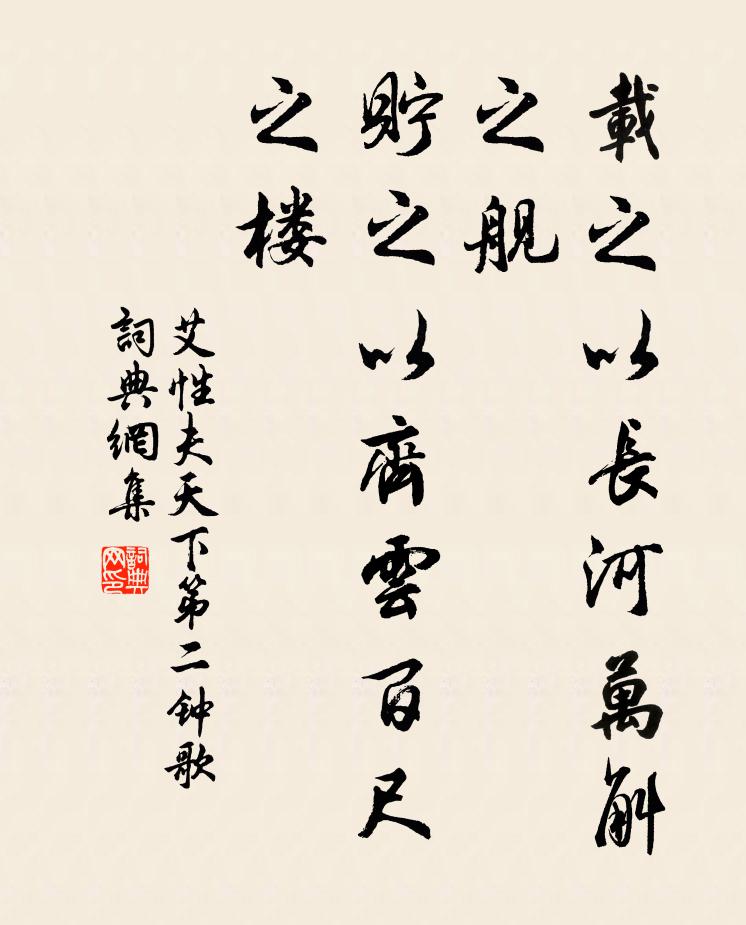 載之以長河萬斛
之舰
貯之以齊雲百尺
之楼
艾性夫天下第二钟歌
詞典網集
詞典网印